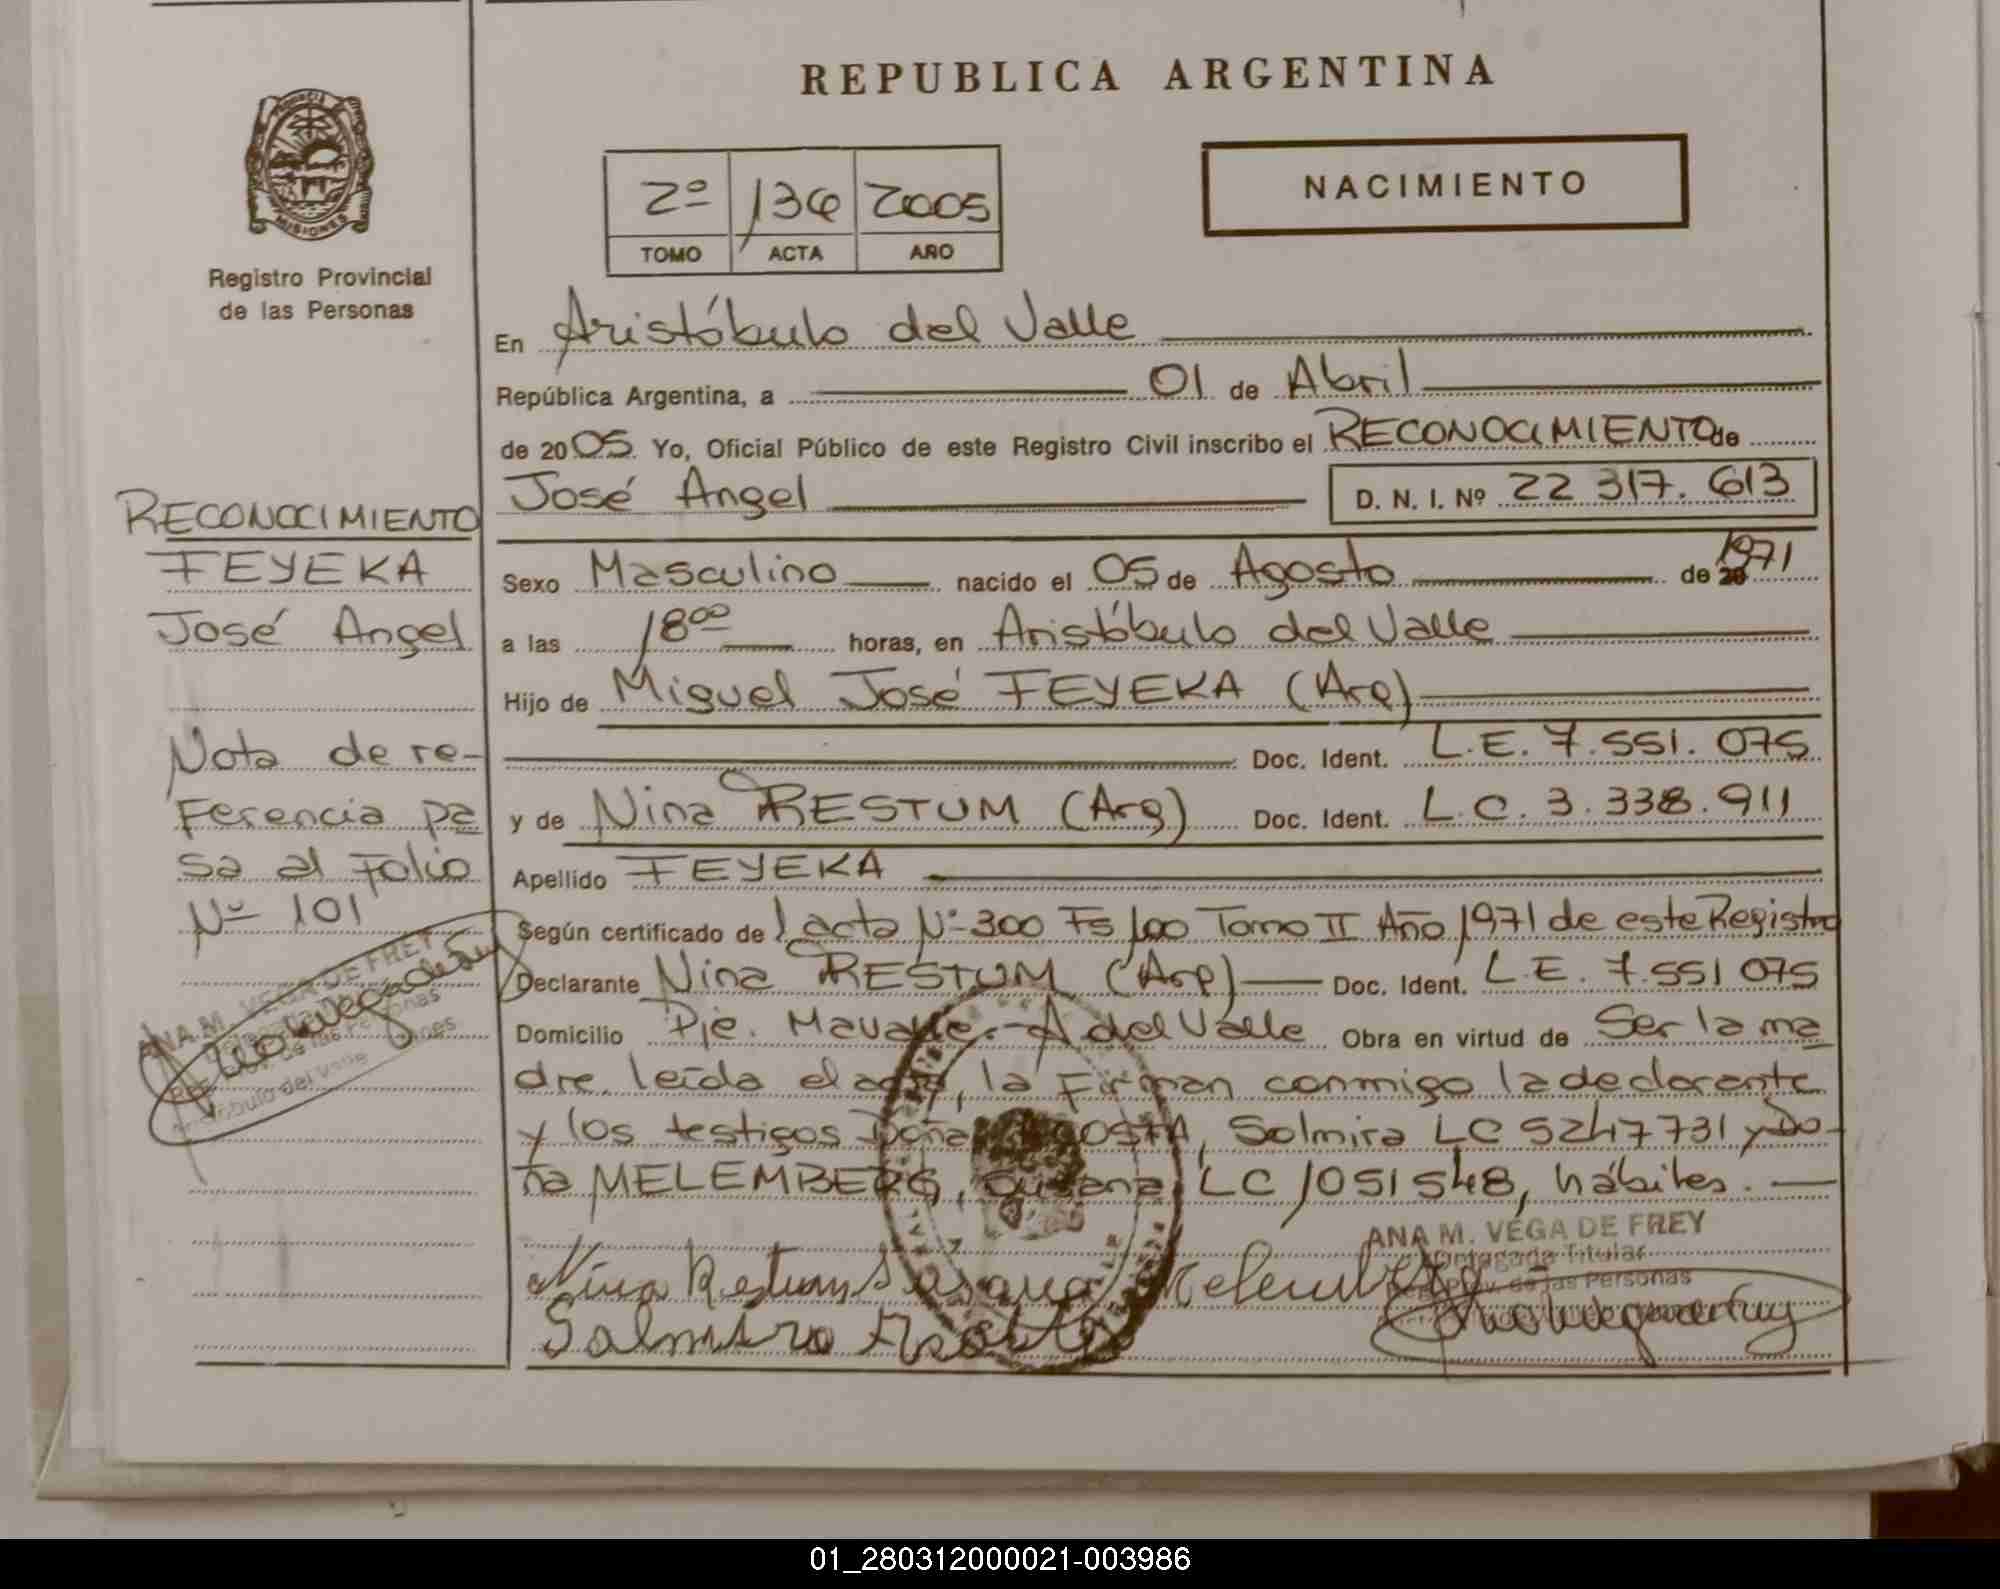 REPUBLICA ARGENTINA
PROVINCIA
MISIONES
Registro Provincial
de las Personas
2º 136 2005
TOMO ACTA AÑO
NACIMIENTO
En Aristóbulo del Valle
República Argentina, a 01 de Abril
de 2005. Yo, Oficial Público de este Registro Civil inscribo el RECONOCIMIENTO de
José Angel D. N. I. Nº 22 317. 613
Sexo Masculino nacido el 05 de Agosto de 1971
a las 18ºº horas, en Aristóbulo del Valle
Hijo de Miguel José FEYEKA (Arg)
Doc. Ident. L.E. 7.551.075
y de Nina RESTUM (Arg) Doc. Ident. L.C. 3.338.911
Apellido FEYEKA
Según certificado de 1 acta Nº 300 Fs 100 Tomo II Año 1971 de este Registro
Declarante Nina RESTUM (Arg) Doc. Ident. L.E. 7.551 075
Domicilio Pje. - A del Valle Obra en virtud de Ser la ma
dre. leída el acta, la Firman conmigo la declarante
y los testigos Doña ACOSTA, Solmira LC 5247731 y Do-
ña MELEMBERG, Susana LC 1051548, hábiles.
Nina Restum Susana Melemberg
Salmira Acosta
ANA M. VEGA DE FREY
Delegada Titular
Reg. Prov. de las Personas
RECONOCIMIENTO
FEYEKA
José Angel
Nota de re-
Ferencia pa
sa al Folio
Nº 101
ANA M. VEGA DE FREY
de las Personas
Aristóbulo del Valle Misiones
01_280312000021-003986